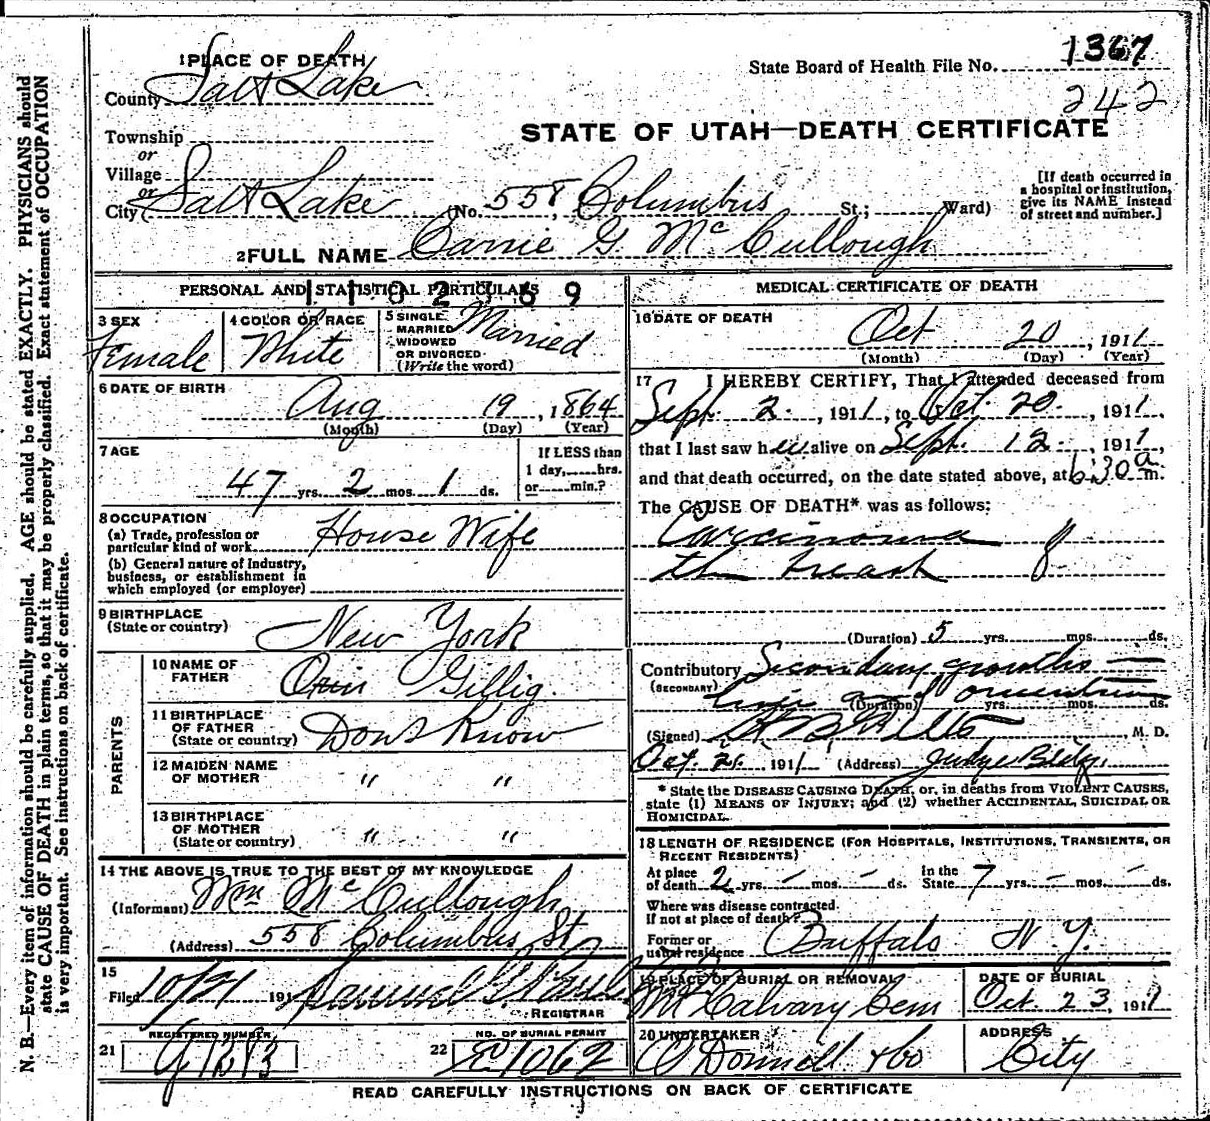 1 PLACE OF DEATH
County Salt Lake
Township
or
Village
or
City Salt Lake (No. 558, Columbus St.; Ward)
State Board of Health File No. 1367
242
STATE OF UTAH—DEATH CERTIFICATE
[If death occurred in
a hospital or institution,
give its NAME instead
of street and number.]
2 FULL NAME Carrie G. McCullough
PERSONAL AND STATISTICAL PARTICULARS
3 SEX
Female
4 COLOR OR RACE
White
5 SINGLE
MARRIED
WIDOWED
OR DIVORCED
(Write the word)
Married
6 DATE OF BIRTH
Aug 19, 1864
(Month) (Day) (Year)
7 AGE
47 yrs. 2 mos. 1 ds.
If LESS than
1 day,......hrs.
or......min.?
8 OCCUPATION
(a) Trade, profession or
particular kind of work House Wife
(b) General nature of Industry,
business, or establishment in
which employed (or employer)
9 BIRTHPLACE
(State or country) New York
PARENTS
10 NAME OF
FATHER Gillig.
11 BIRTHPLACE
OF FATHER
(State or country) Don't Know
12 MAIDEN NAME
OF MOTHER " "
13 BIRTHPLACE
OF MOTHER
(State or country) " "
14 THE ABOVE IS TRUE TO THE BEST OF MY KNOWLEDGE
(Informant) Wm McCullough
(Address) 558 Columbus St
15
Filed 10/21 191 Samuel G.
REGISTRAR
REGISTERED NUMBER
21
NO. OF BURIAL PERMIT
22 E1062
MEDICAL CERTIFICATE OF DEATH
16 DATE OF DEATH
Oct 20, 1911
(Month) (Day) (Year)
17 I HEREBY CERTIFY, That I attended deceased from
Sept. 2, 1911, to Oct. 20, 1911,
that I last saw her alive on Sept. 12, 1911,
and that death occurred, on the date stated above, at 6:30 a m.
The CAUSE OF DEATH* was as follows:
Carcinoma of
the breast
(Duration) 5 yrs. mos. ds.
Contributory Secondary growths
(SECONDARY) omentum
(Duration) yrs. mos. ds.
(Signed) M. D.
Oct. 21, 1911 (Address) Judge Bldg.
* State the DISEASE CAUSING DEATH, or, in deaths from VIOLENT CAUSES,
state (1) MEANS OF INJURY; and (2) whether ACCIDENTAL, SUICIDAL OR
HOMICIDAL.
18 LENGTH OF RESIDENCE (FOR HOSPITALS, INSTITUTIONS, TRANSIENTS, OR
RECENT RESIDENTS)
At place
of death 2 yrs. - mos. - ds. In the
State 7 yrs. - mos. - ds.
Where was disease contracted,
If not at place of death?
Former or
usual residence Buffalo N.Y.
19 PLACE OF BURIAL OR REMOVAL
Mt Calvary Cem
DATE OF BURIAL
Oct. 23, 1911
20 UNDERTAKER
O'Donnell & Co
ADDRESS
City
READ CAREFULLY INSTRUCTIONS ON BACK OF CERTIFICATE
N. B.—Every item of information should be carefully supplied. AGE should be stated EXACTLY. PHYSICIANS should
state CAUSE OF DEATH in plain terms, so that it may be properly classified. Exact statement of OCCUPATION
is very important. See instructions on back of certificate.